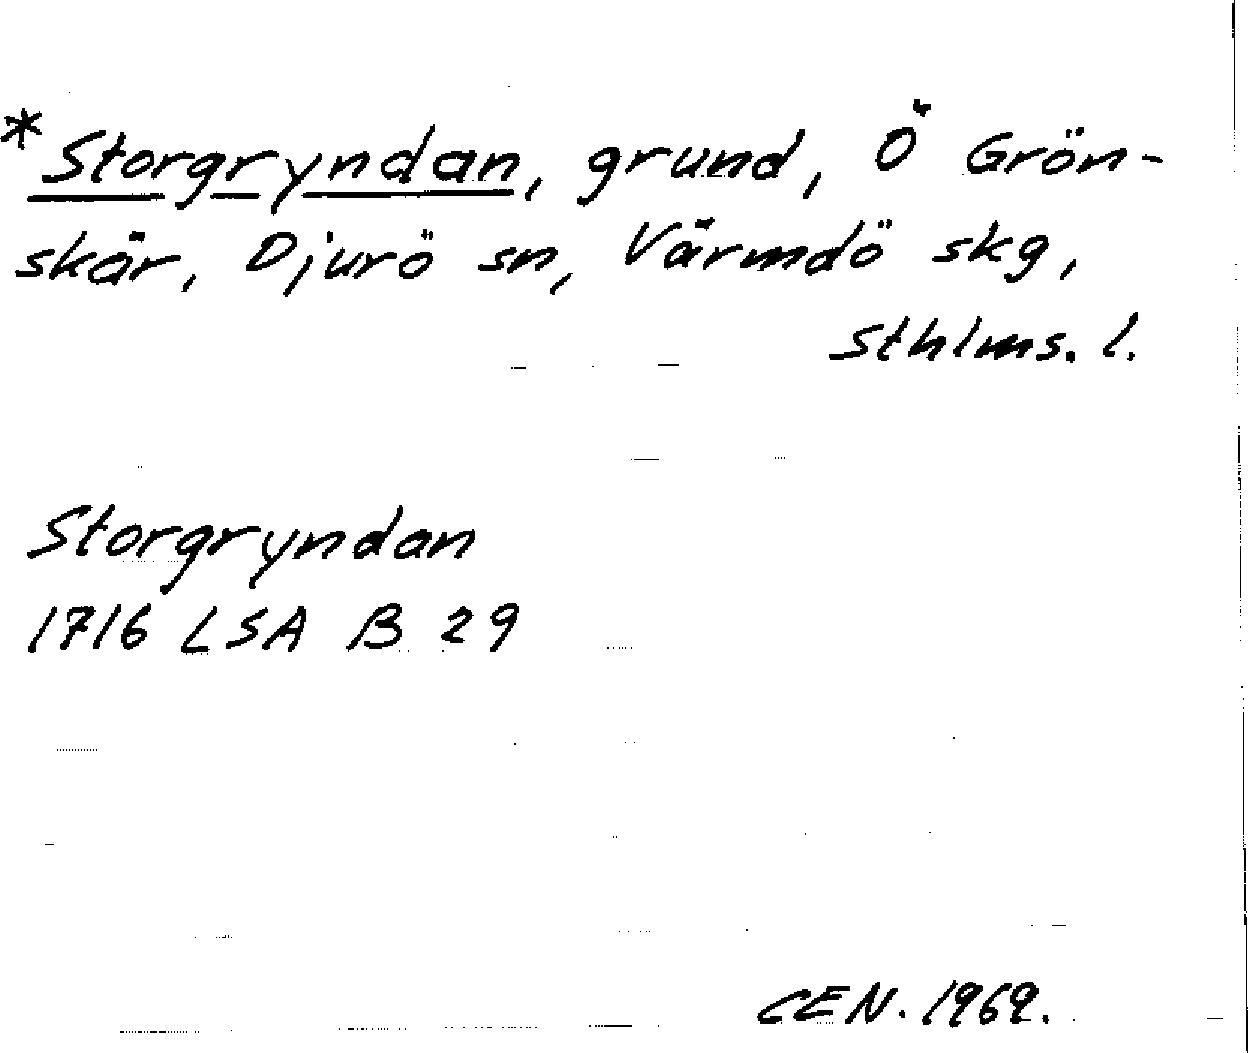 *Storgryndan, grund, Ö Grön-
skär, Djurö sn, Värmdö skg,
Sthlms. l.
Storgryndan
1716 LSA B 29
CEN. 1969.